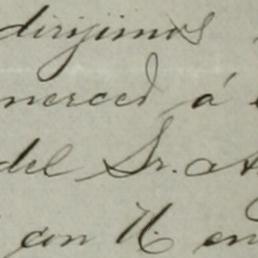 dirijimos
merced á
del Sr.
con N. en